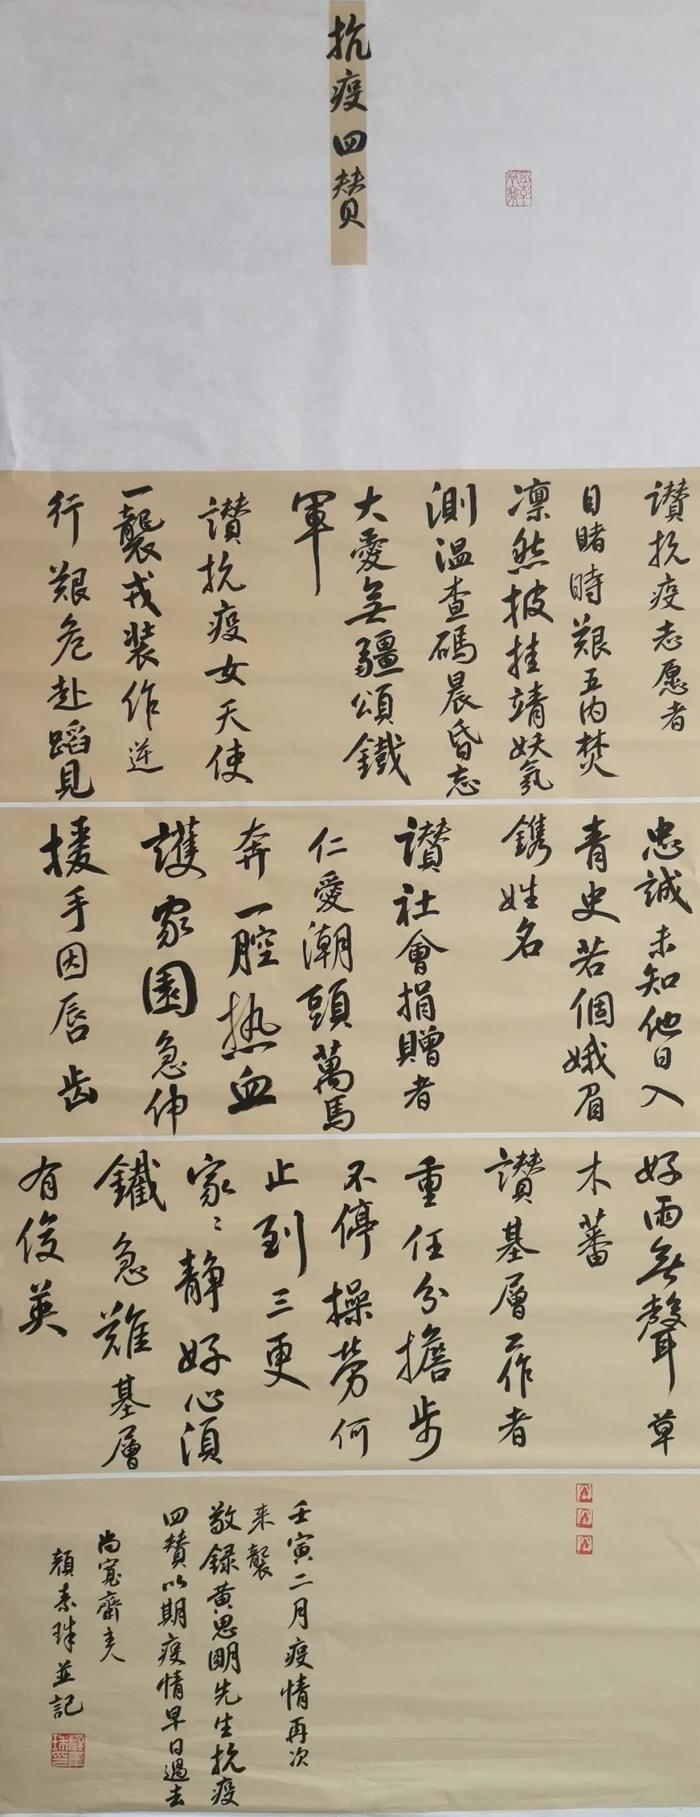 抗疫四赞
讚抗疫志愿者
目睹時艱五内焚
凛然披挂靖妖氛
測温查碼晨昏忘
大愛無疆頌鐵
軍
讃抗疫女天使
一襲戎装作逆
行艱危赴蹈見
忠誠未知他日入
青史若個娥眉
鐫姓名
讃社會捐贈者
仁愛潮頭萬馬
奔一腔热血
護家園急伸
援手因唇齿
好雨無聲草
木蕃
讃基層工作者
重任分擔步
不停操勞何
止到三更
家〻静好心須
鐵急難基層
有俊英
壬寅二月疫情再次
来襲
敬録黄思明先生抗疫
四赞以期疫情早日過去
尚寬齋主人
顏素珠並記